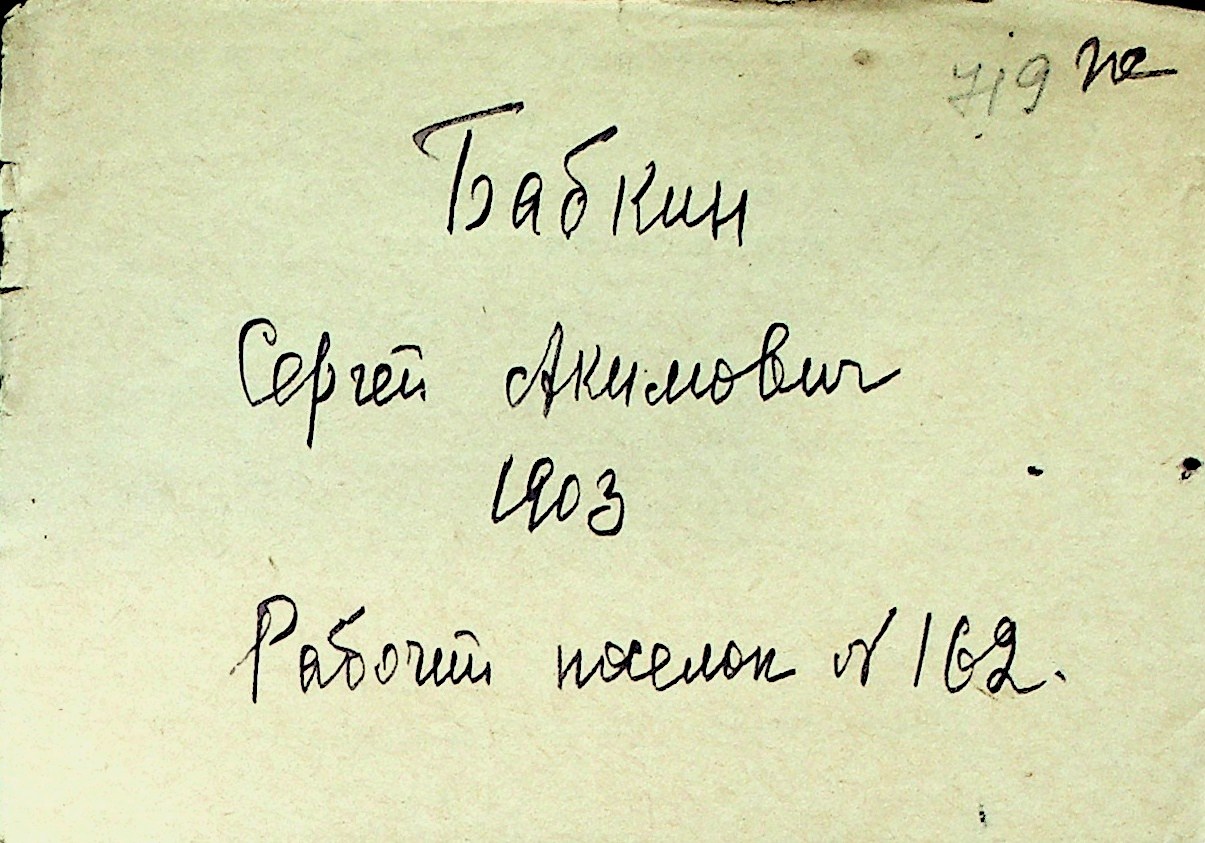 719
Бабкин
Сергей Акимович
1903
Рабочий поселок № 162.